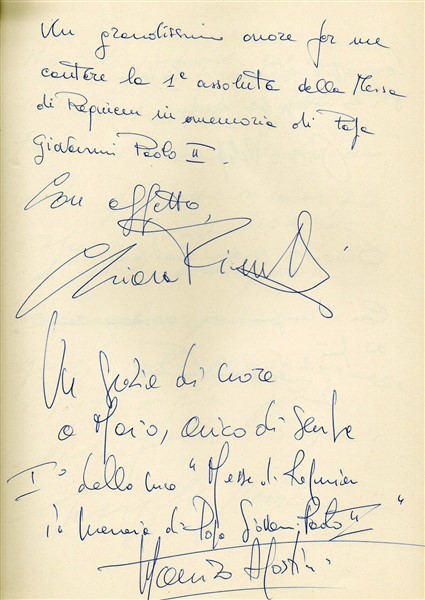 Un grandissimo onore per me
cantare la 1ª assoluta della Messa
di Requiem in memoria di Papa
Giovanni Paolo II.
Con affetto,
Chiara
Un grazie di cuore
a Mario, amico di sempre
Iª della mia "Messa di Requiem
in memoria di Papa Giovanni Paolo II"
Maurizio